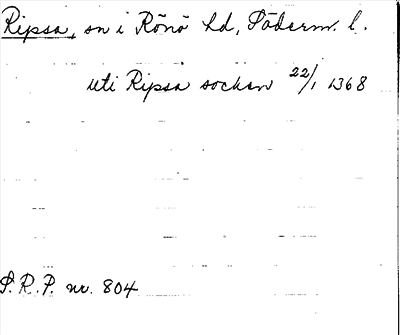 Ripsa, sn i Rönö hd, Söderm. l.
uti Ripsa sockan 22/1 1368
S.R.P. nr. 804